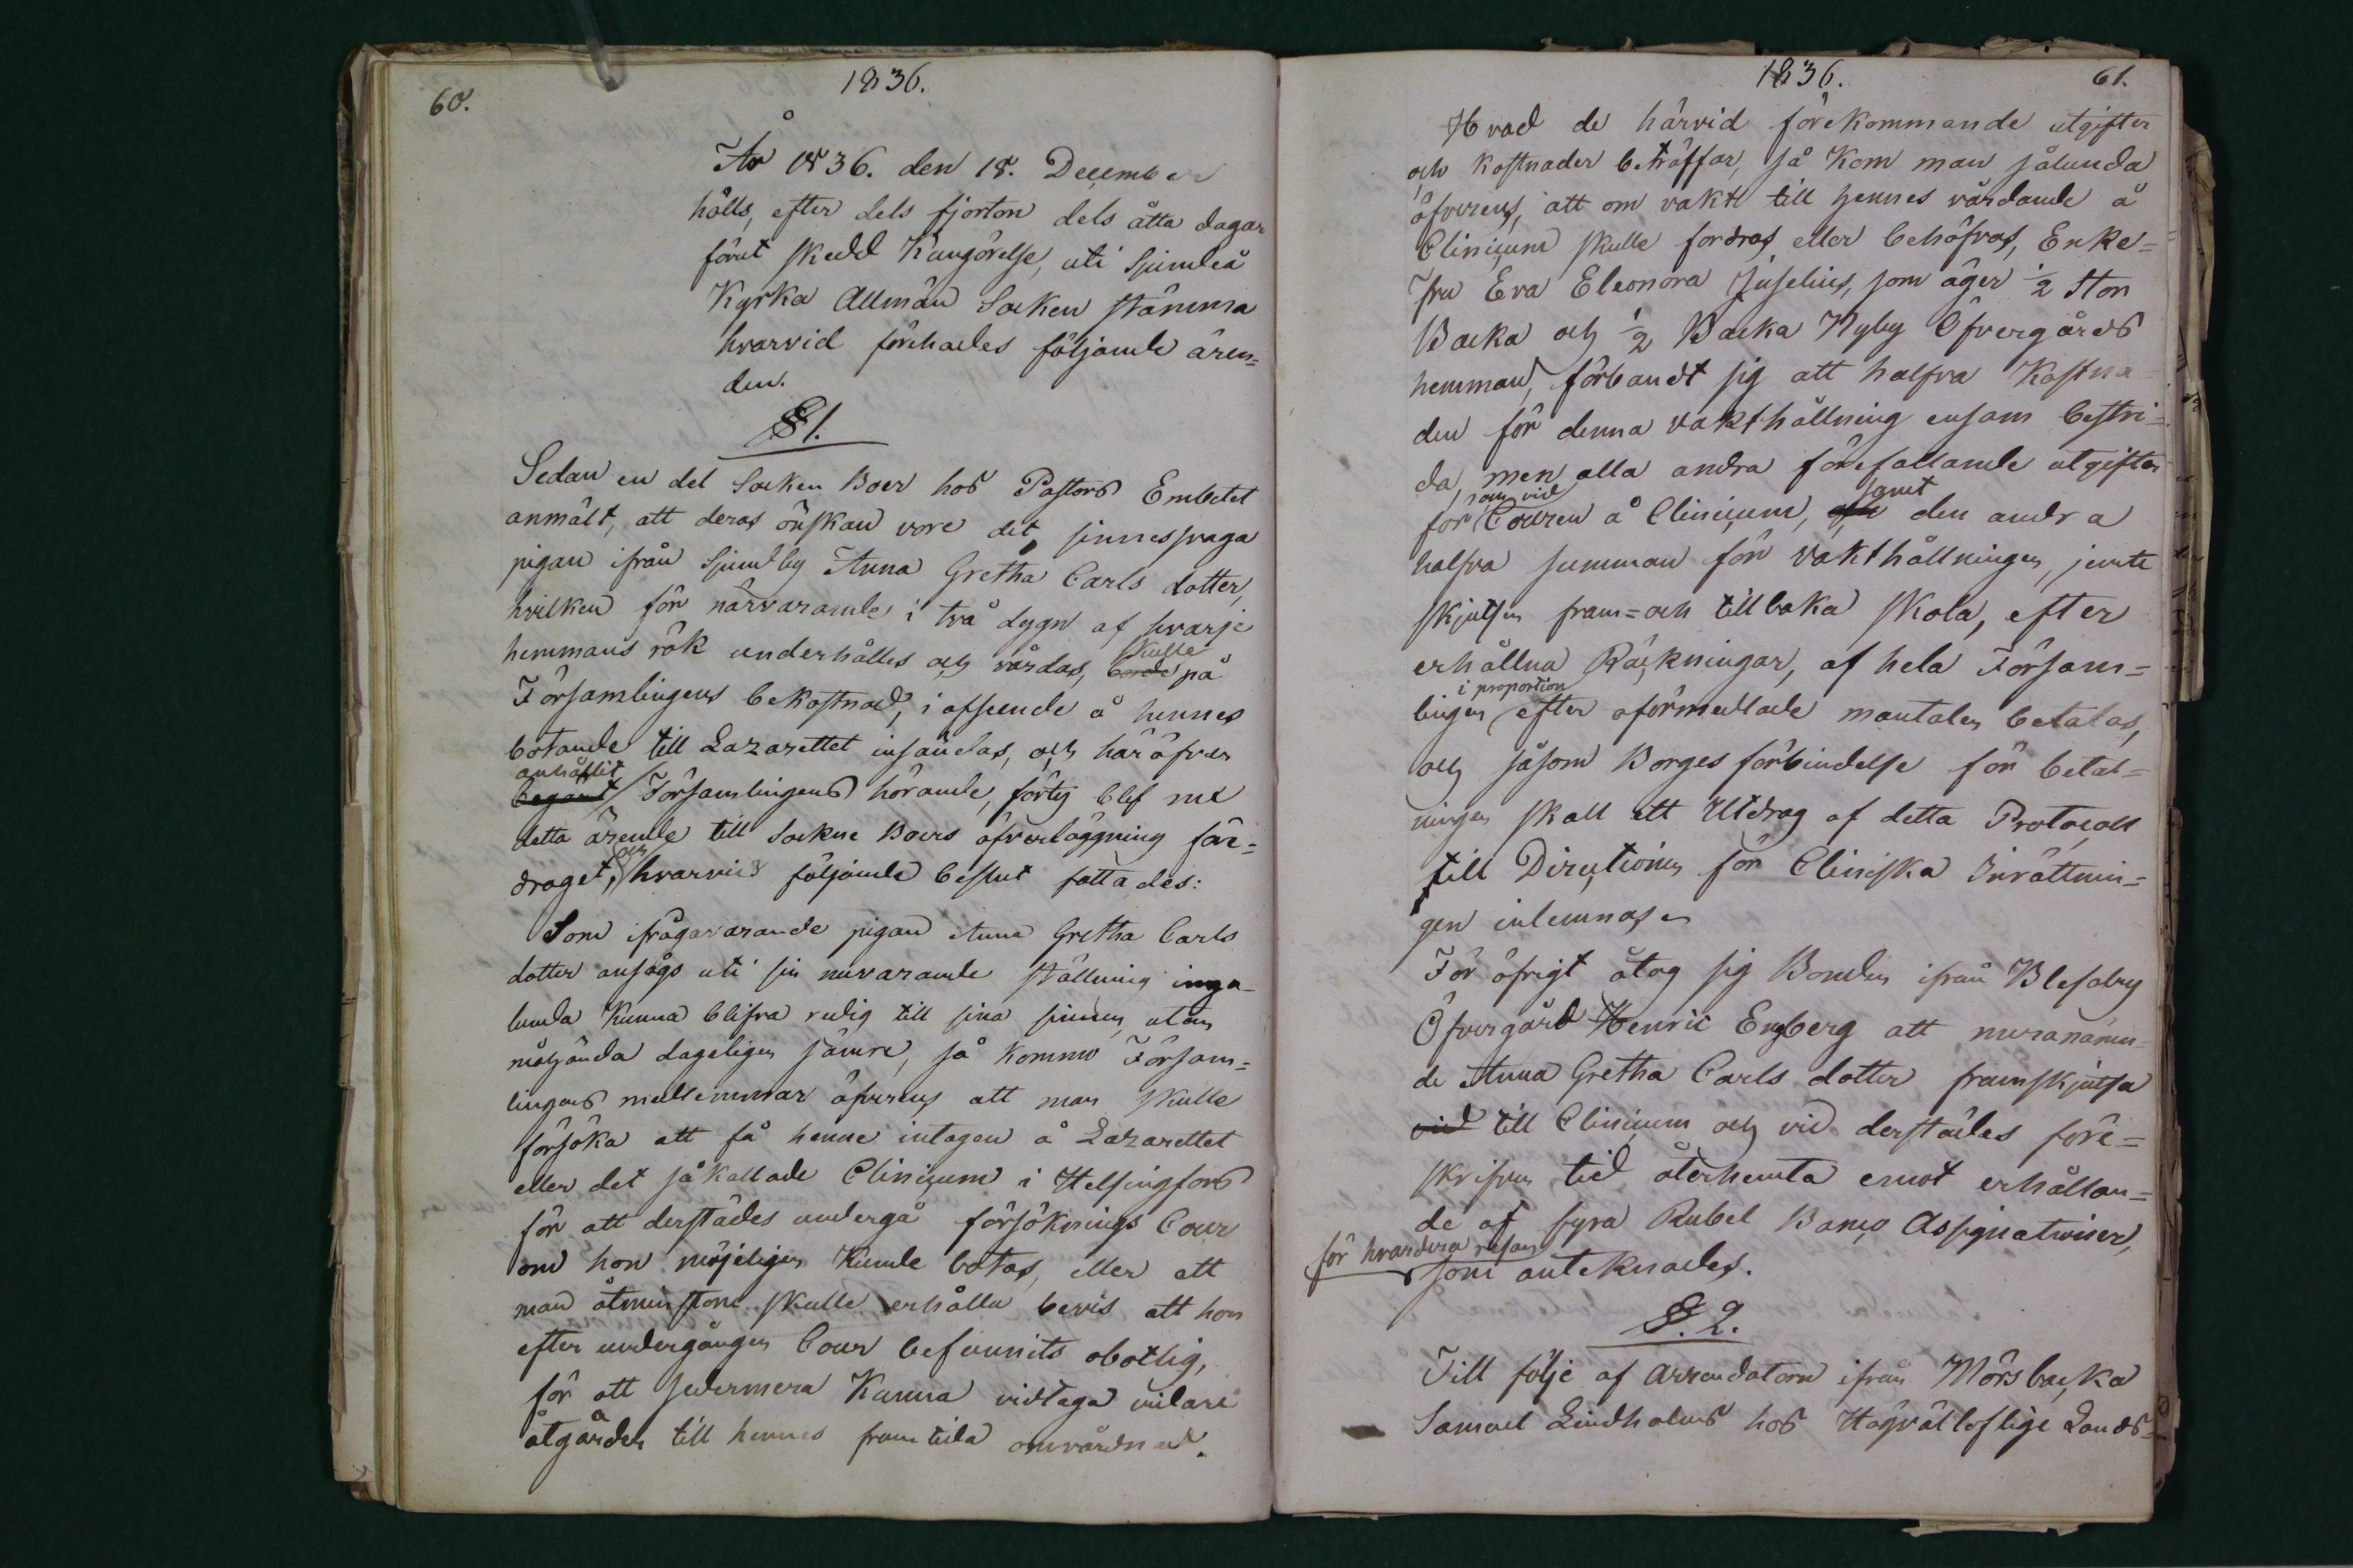 60.
1836.
År 1836. den 18. December
hölls, efter dels fjorton dels åtta dagar
förut skedd Kungörelse, uti Sjundeå
Kyrka Allmän Socken stämma
hvarvid förehades följande ären=
den.
§ 1.
Sedan en del Socken Boer hos Pastors Embetet
anmält, att deras önskan vore det sinnessvaga
pigan ifrån Sjundby Anna Gretha Carls dotter,
hvilken för närvarande i två dygn af hvarje
hemmans rök underhålles och vårdas, borde skulle på
Församlingens bekostnad, i afseende å hennes
botande till Lazarettet insändas, och häröfver
begärt anhållit Församlingens hörande, förty blef nu
detta ärende till Sockne Boers öfverläggning före=
draget, och hvarvid följande beslut fattades:
Som ifrågavarande pigan Anna Gretha Carls
dotter ansågs uti sin nuvarande ställning inga=
lunda kunna blifva redig till sina sinnen, utan
måhända dageligen sämre, så kommo Försam=
lingens medlemmar öfverens att man skulle
försöka att få henne intagen å Lazarettet
eller det så kallade Clinicum i Helsingfors
för att derstädes undergå försöknings Cour
om hon möjeligen kunde botas, eller att
man åtminstone skulle erhålla bevis att hon
efter undergången Cour befunnits obotlig,
för att sedermera kunna vidtaga vidare
åtgärder till hennes framtida omvårdnad.
1836.
61.
Hvad de härvid förekommande utgifter
och kostnader beträffar, så kom man sålunda
öfverens, att om vakt till hennes vårdande å
Clinicum skulle fordras eller behöfvas, Enke=
Fru Eva Eleonora Juselius, som äger ½ Stor
Backa och ½ Backa Nyby Öfvergårds
hemman, förbandt sig att halfva Kostna=
den för denna vakthållning ensam bestri=
da, men alla andra förefallande utgifter
för som vid Couren å Clinicum, och samt den andra
halfva summan för vakthållningen, jemte
skjutsen fram= och tillbaka skola, efter
erhållna Räkningar, af hela Försam=
lingen i proportion efter oförmedlade mantalen betalas,
och såsom Borgesförbindelse för betal=
ningen skall ett Utdrag af detta Protocoll
till Directionen för Cliniska Inrättnin=
gen inlemnas.
För öfrigt åtog sig Bonden ifrån Blefaby
Öfvergård Henric Engberg att meranämn=
de Anna Gretha Carls dotter framskjutsa
vid till Clinicum och vid derstädes före=
skrifven tid återhemta emot erhållan=
de af fyra Rubel Banco Assignationer,
för hvardera resan
som antecknades.
§. 2.
Till följe af Arrendatorn ifrån Mörsbacka
Samuel Lindholms hos Högvälloflige Lands=